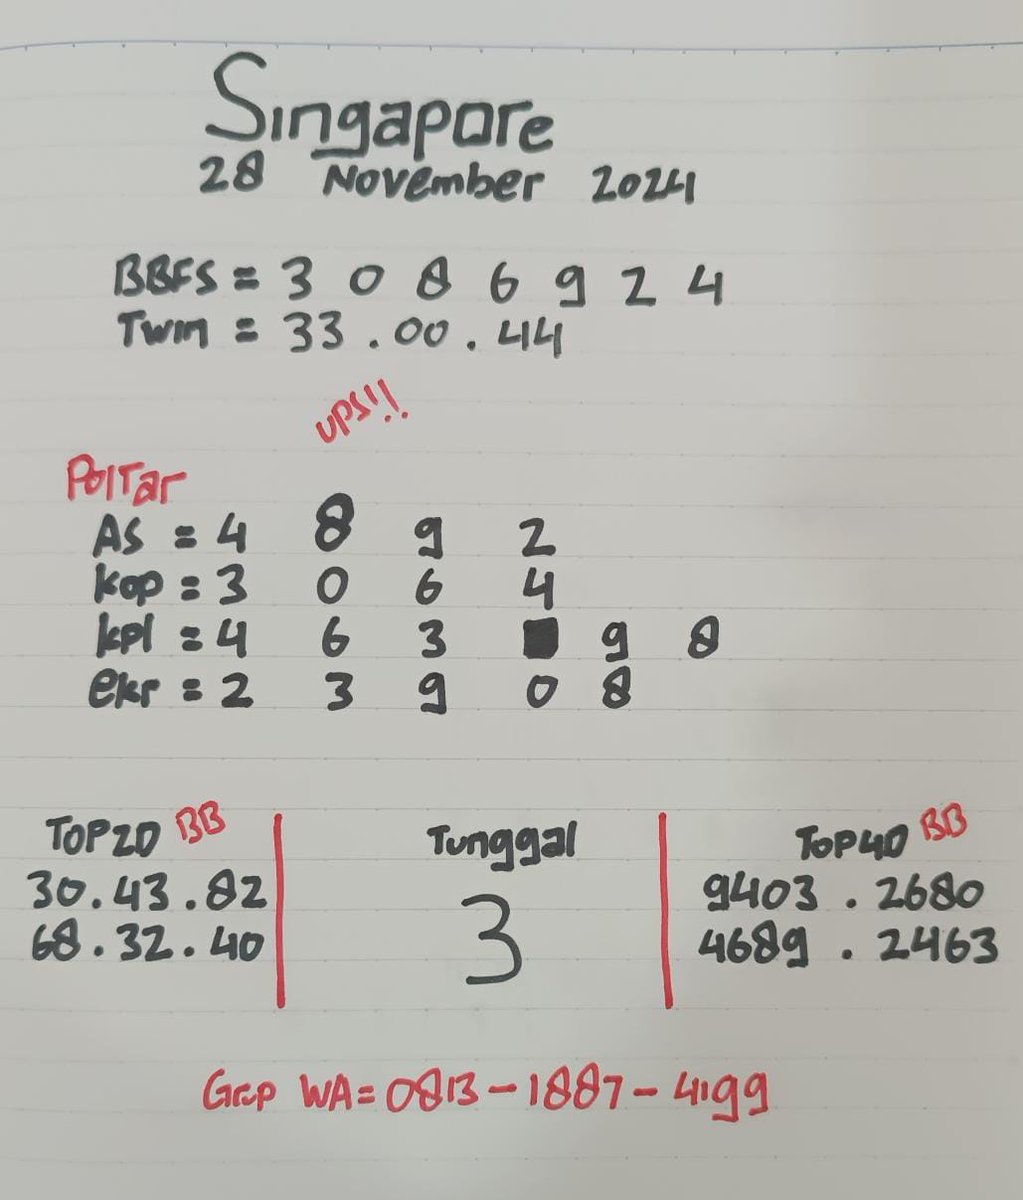 Singapore
28 November 2024
BBFS = 3 0 8 6 9 2 4
Twin = 33 . 00 . 44
UPS!!
Poltar
AS = 4 8 9 2
kop = 3 0 6 4
kpl = 4 6 3 9 8
ekr = 2 3 9 0 8
TOP2D BB
30 . 43 . 82
68 . 32 . 40
Tunggal
3
TOP4D BB
9403 . 2680
4689 . 2463
Grup WA = 0813 - 1887 - 4199